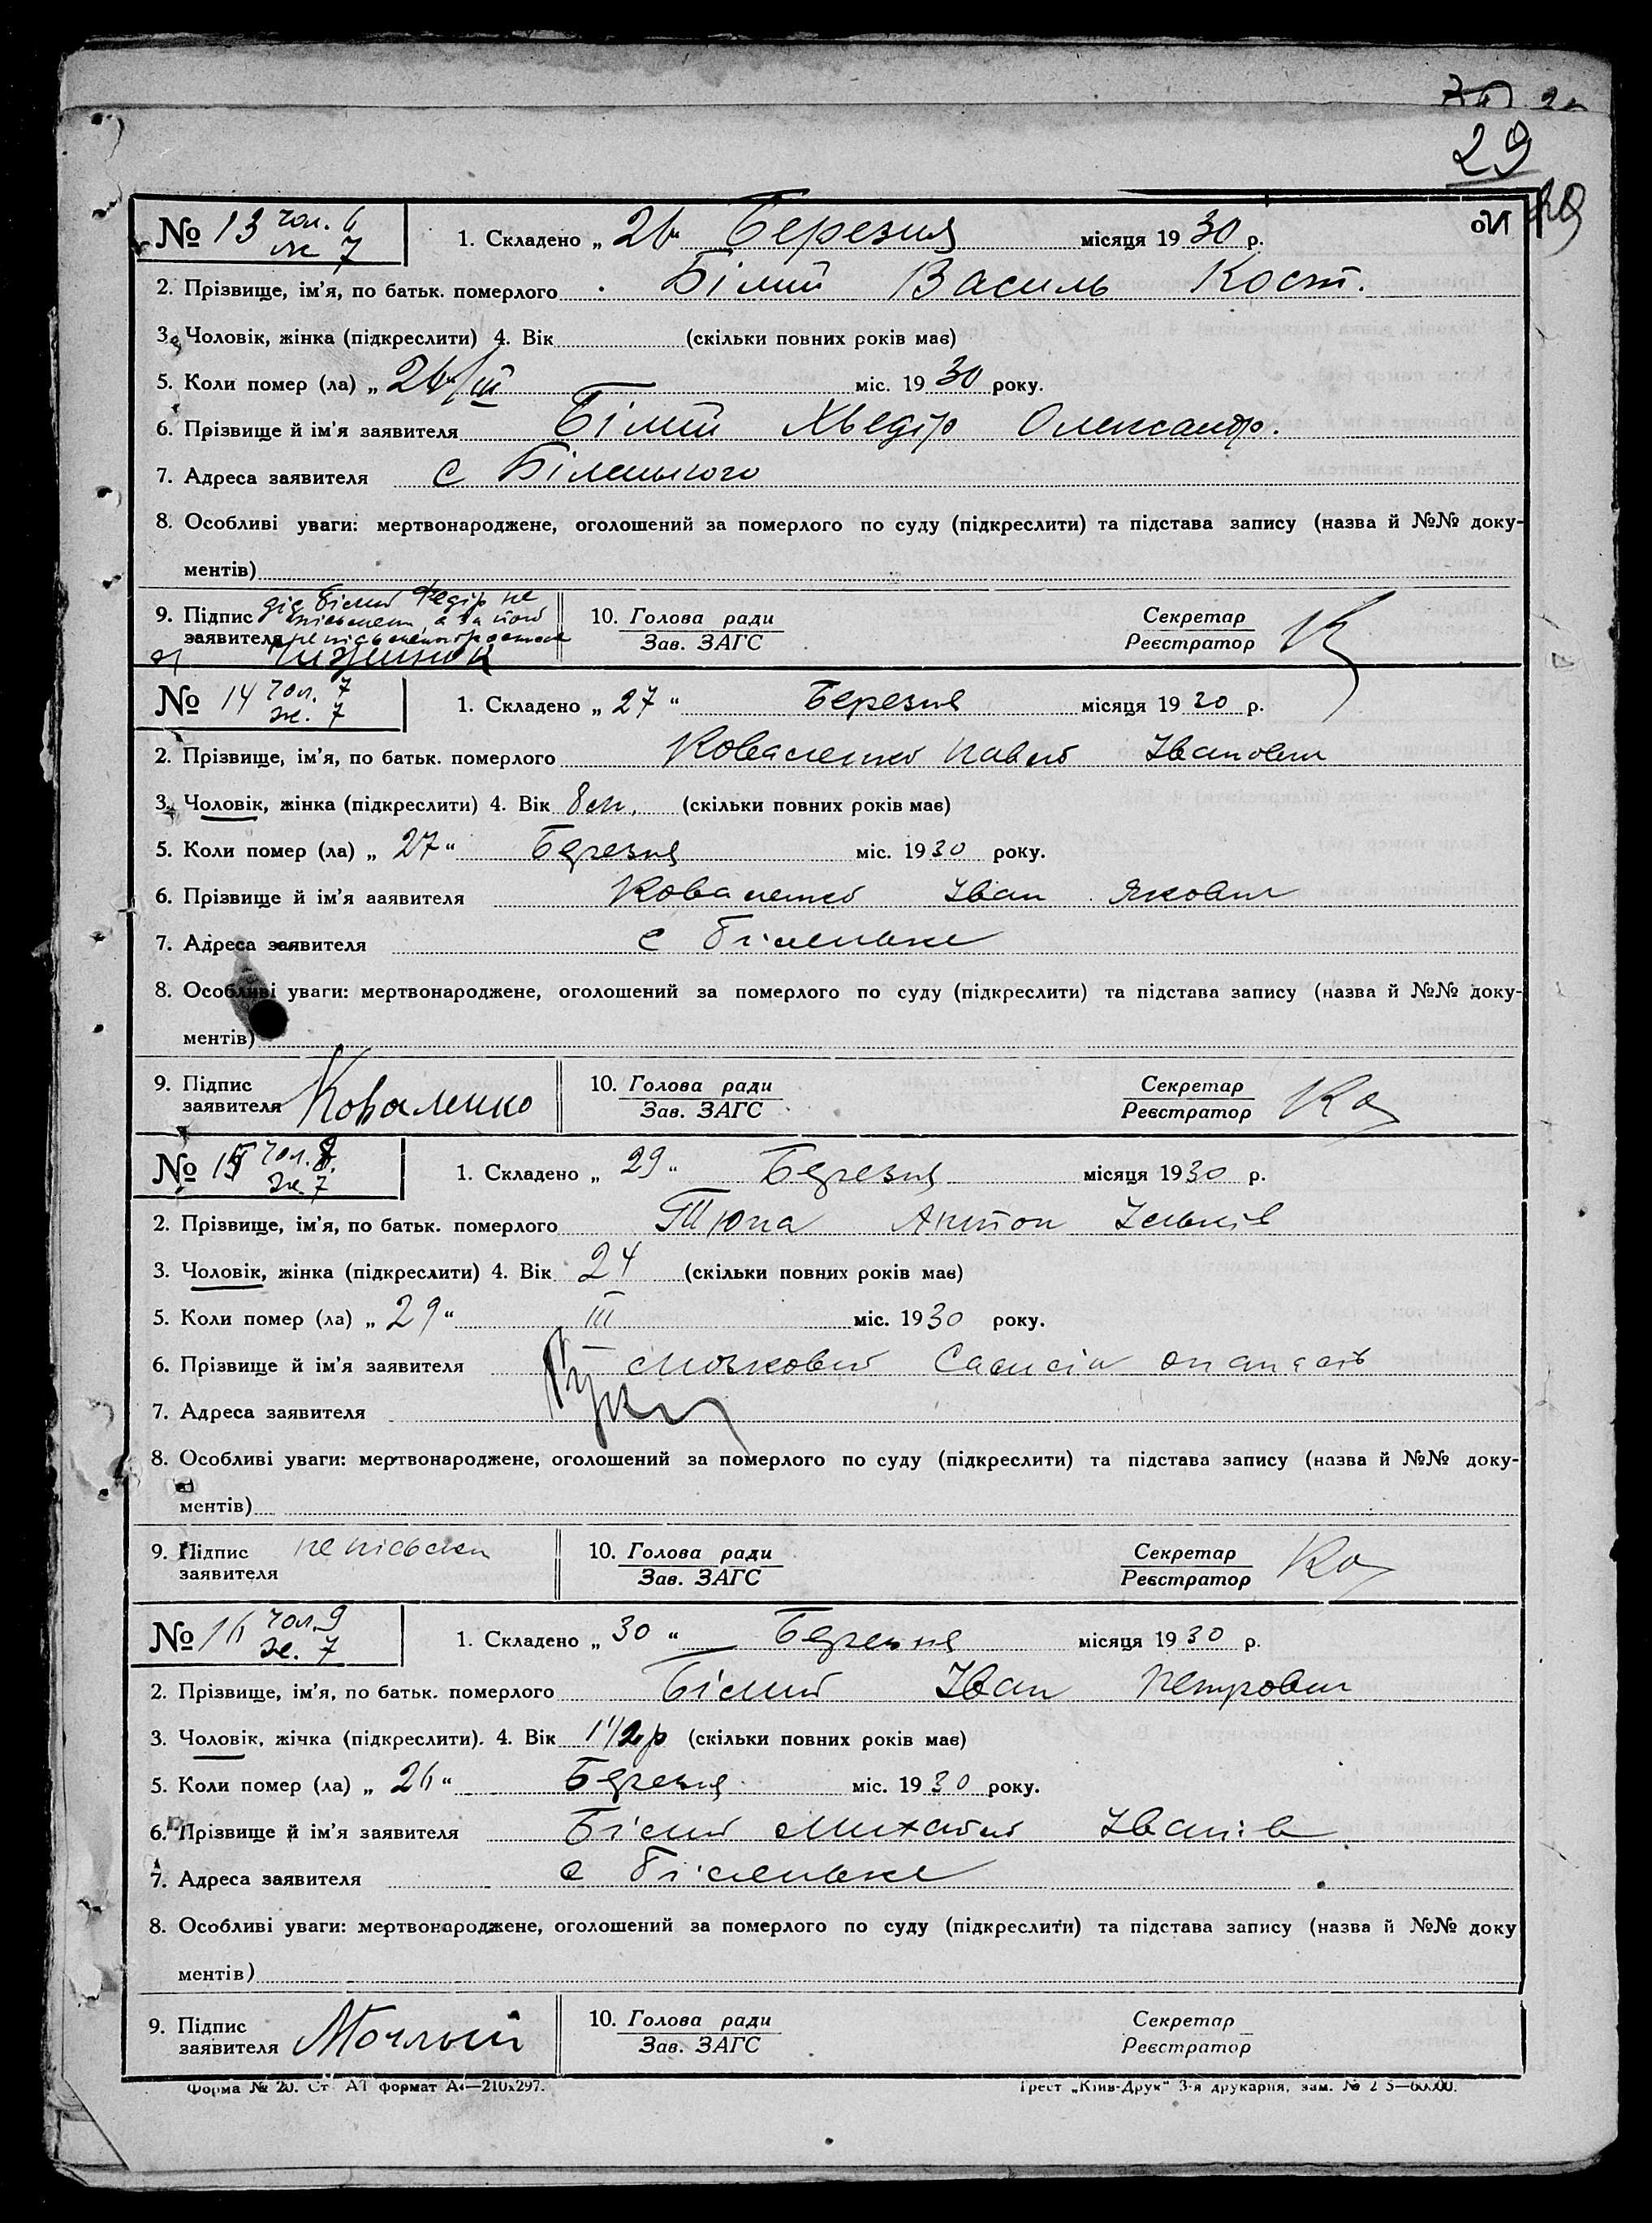 29
№ 13 чол. 6
ж 7
1. Складено „ 26 Березня місяця 19 30 р.
2. Прізвище, ім'я, по батьк. померлого Білий Василь Кост.
3. Чоловік, жінка (підкреслити) 4. Вік (скільки повних років має)
5. Коли помер (ла) „ 26/III міс. 19 30 року.
6. Прізвище й ім'я заявителя Білий Хведір Олександр.
7. Адреса заявителя с Біленького
8. Особливі уваги: мертвонароджене, оголошений за померлого по суду (підкреслити) та підстава запису (назва й №№ доку-
ментів)
9. Підпис заявителя дід білий Федір не
10. Голова ради Зав. ЗАГС
Секретар Реєстратор
№ 14 чол. 7
ж. 7
1. Складено „ 27 “ Березня місяця 19 30 р.
2. Прізвище, ім'я, по батьк. померлого Коваленко Павло Іванович
3. Чоловік, жінка (підкреслити) 4. Вік 8 м. (скільки повних років має)
5. Коли помер (ла) „ 27 “ Березня міс. 19 30 року.
6. Прізвище й ім'я ааявителя Коваленко Іван Якович
7. Адреса заявителя с біленьке
8. Особливі уваги: мертвонароджене, оголошений за померлого по суду (підкреслити) та підстава запису (назва й №№ доку-
ментів)
9. Підпис заявителя Коваленко
10. Голова ради Зав. ЗАГС
Секретар Реєстратор Ко
№ 15 чол. 8.
ж. 7
1. Складено „ 29 “ Березня місяця 19 30 р.
2. Прізвище, ім'я, по батьк. померлого Тюпа Антон Ільків
3. Чоловік, жінка (підкреслити) 4. Вік 24 (скільки повних років має)
5. Коли помер (ла) „ 29 “ III міс. 19 30 року.
6. Прізвище й ім'я заявителя
7. Адреса заявителя
8. Особливі уваги: мертвонароджене, оголошений за померлого по суду (підкреслити) та підстава запису (назва й №№ доку-
ментів)
9. Підпис заявителя не письмен
10. Голова ради Зав. ЗАГС
Секретар Реєстратор Ко
№ 16 чол. 9
ж. 7
1. Складено „ 30 “ Березня місяця 19 30 р.
2. Прізвище, ім'я, по батьк. померлого Білий Іван Петрович
3. Чоловік, жінка (підкреслити). 4. Вік 1 1/2 р (скільки повних років має)
5. Коли помер (ла) „ 26 “ Березня міс. 19 30 року.
6. Прізвище й ім'я заявителя Білий Михайло Іванів
7. Адреса заявителя с біленьке
8. Особливі уваги: мертвонароджене, оголошений за померлого по суду (підкреслити) та підстава запису (назва й №№ доку
ментів)
9. Підпис заявителя
10. Голова ради Зав. ЗАГС
Секретар Реєстратор
Форма № 20. Ст АТ формат А4—210x297.
Трест „Київ-Друк“ 3-я друкарня, зам.